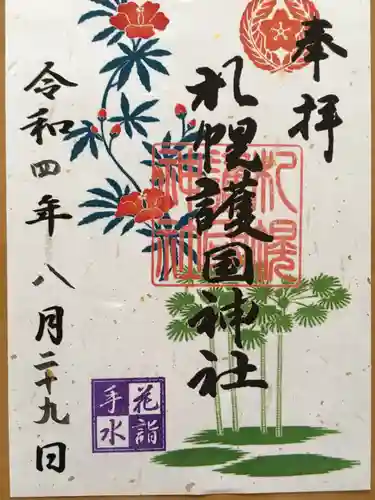 奉拝
札幌護国神社
札幌護国神社
令和四年八月二十九日
花詣
手水